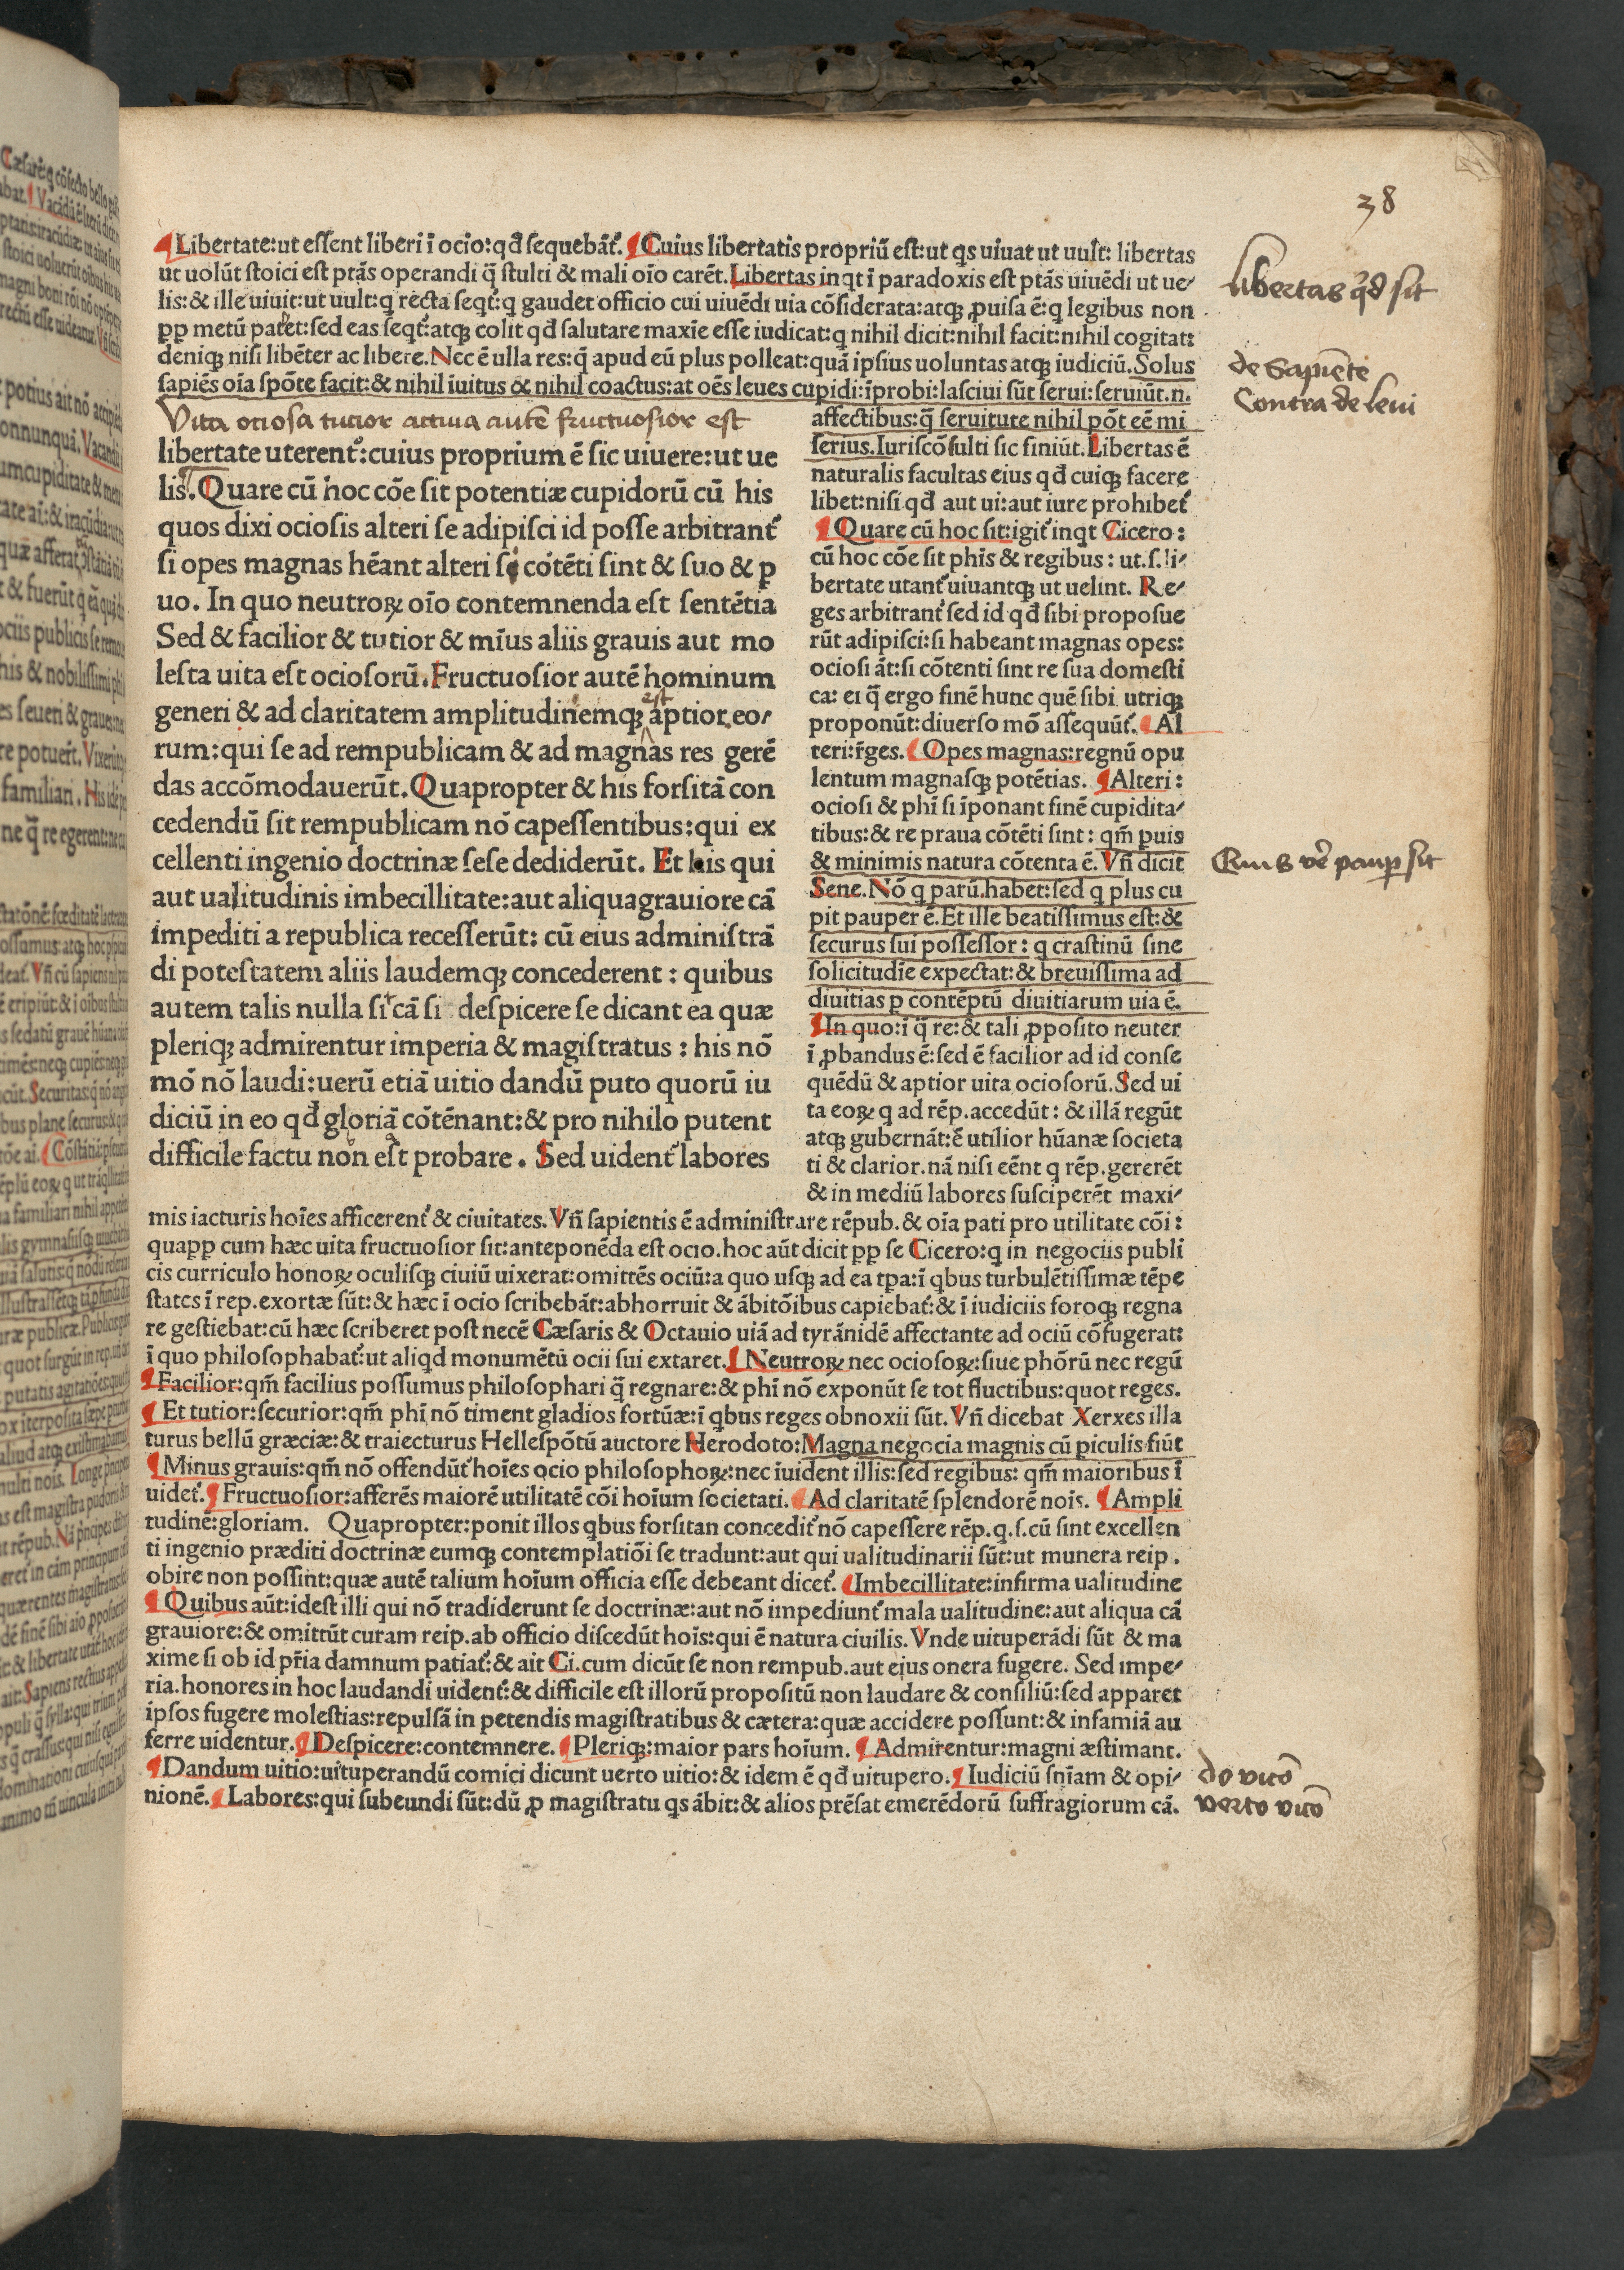 38
¶Libertate:ut eſſent liberi ī ocio:qđ ſequebāt᷑. ¶Cuius libertatis propriū eſt:ut qs uiuat ut uult: libertas
ut uolūt ſtoici eſt ptās operandi q̄ ſtulti & mali oīo carēt.Libertas inqt ī paradoxis eſt ptās uiuēdi ut ue/
lis:& ille uiuit:ut uult:q recta ſeqt᷑:q gaudet officio cui uiuēdi uia cōſiderata:atqꝫ ꝓuiſa ē:q legibus non
ꝓp metū paret:ſed eas ſeqt᷑:atqꝫ colit qđ ſalutare maxīe eſſe iudicat:q nihil dicit:nihil facit:nihil cogitat:
deniqꝫ niſi libēter ac libere.Nec ē ulla res:q̄ apud eū plus polleat:quā ipſius uoluntas atqꝫ iudiciū.Solus
ſapiēs oīa ſpōte facit:& nihil īuitus & nihil coactus:at oēs leues cupidi:īprobi:laſciui ſūt ſerui:ſeruiūt.n.
libertas qđ ſit
de Sapiēte
Contra de leui
Vita ocioſa tutior actiua autē fructuoſior eſt
libertate uterent᷑:cuius proprium ē ſic uiuere:ut ue
lis.Quare cū hoc cōe ſit potentiæ cupidorū cū his
quos dixi ocioſis alteri ſe adipiſci id poſſe arbitrant᷑
ſi opes magnas hēant alteri ſi cōtēti ſint & ſuo & p
uo. In quo neutroꝝ oīo contemnenda eſt ſentētia
Sed & facilior & tutior & mīus aliis grauis aut mo
leſta uita eſt ocioſorū.Fructuoſior autē hominum
generi & ad claritatem amplitudinemqꝫ aptior est eo/
rum:qui ſe ad rempublicam & ad magnas res gerē
das accōmodauerūt.Quapropter & his forſitā con
cedendū ſit rempublicam nō capeſſentibus:qui ex
cellenti ingenio doctrinæ ſeſe dediderūt. Et his qui
aut ualitudinis imbecillitate:aut aliquagrauiore cā
impediti a republica receſſerūt: cū eius adminiſtrā
di poteſtatem aliis laudemqꝫ concederent : quibus
autem talis nulla ſit cā ſi deſpicere ſe dicant ea quæ
pleriqꝫ admirentur imperia & magiſtratus : his nō
mō nō laudi:uerū etiā uitio dandū puto quorū iu
diciū in eo qđ gloriā cōtēnant:& pro nihilo putent
difficile factu non eſt probare . Sed uident᷑ labores
affectibus:q̄ ſeruitute nihil pōt eē mi
ſerius.Iuriſcōſulti ſic finiūt.Libertas ē
naturalis facultas eius qđ cuiqꝫ facere
libet:niſi qđ aut ui:aut iure prohibet᷑
¶Quare cū hoc ſit:igit᷑ inqt Cicero:
cū hoc cōe ſit phīs & regibus : ut.ſ.li/
bertate utant᷑ uiuantqꝫ ut uelint. Re/
ges arbitrant᷑ ſed id qđ ſibi propoſue
rūt adipiſci:ſi habeant magnas opes:
ocioſi āt:ſi cōtenti ſint re ſua domeſti
ca: ei q̄ ergo finē hunc quē ſibi utriqꝫ
proponūt:diuerſo mō aſſequūt᷑. ¶Al
teri:r̄ges. ¶Opes magnas:regnū opu
lentum magnaſqꝫ potētias. ¶Alteri :
ocioſi & phī ſi īponant finē cupidita/
tibus:& re praua cōtēti ſint : qm̄ puis
& minimis natura cōtenta ē. Vn̄ dicit
Sene.Nō q parū.habet:ſed q plus cu
pit pauper ē.Et ille beatiſſimus eſt:&
ſecurus ſui poſſeſſor : q craſtinū ſine
ſolicitudīe expectat:& breuiſſima ad
diuitias p contēptū diuitiarum uia ē.
¶In quo:ī q̄ re:& tali ꝓpoſito neuter
ī ꝓbandus ē:ſed ē facilior ad id conſe
quēdū & aptior uita ocioſorū.Sed ui
ta eoꝝ q ad rēp.accedūt : & illā regūt
atqꝫ gubernāt:ē utilior hūanæ ſocieta
ti & clarior.nā niſi eēnt q rēp.gererēt
& in mediū labores ſuſciperēt maxi/
Quis vē paup ſit
mis iacturis hoīes afficerent᷑ & ciuitates.Vn̄ ſapientis ē adminiſtrare rēpub.& oīa pati pro utilitate cōi :
quaꝓp cum hæc uita fructuoſior ſit:anteponēda eſt ocio.hoc aūt dicit ꝓp ſe Cicero:q in negociis publi
cis curriculo honoꝝ oculiſqꝫ ciuiū uixerat:omittēs ociū:a quo uſqꝫ ad ea tpa:ī qbus turbulētiſſimæ tēpe
ſtates ī rep.exortæ ſūt:& hæc ī ocio ſcribebāt:abhorruit & ābitōibus capiebat᷑:& ī iudiciis foroqꝫ regna
re geſtiebat:cū hæc ſcriberet poſt necē Cæſaris & Octauio uiā ad tyrānidē affectante ad ociū cōfugerat:
ī quo philoſophabat᷑:ut aliqd monumētū ocii ſui extaret. ¶Neutroꝝ nec ocioſoꝝ:ſiue phōrū nec regū
¶Facilior:qm̄ facilius poſſumus philoſophari q̄ regnare:& phī nō exponūt ſe tot fluctibus:quot reges.
¶Et tutior:ſecurior:qm̄ phī nō timent gladios fortūæ:ī qbus reges obnoxii ſūt. Vn̄ dicebat Xerxes illa
turus bellū græciæ:& traiecturus Helleſpōtū auctore Herodoto:Magna negocia magnis cū piculis fiūt
¶Minus grauis:qm̄ nō offendūt᷑ hoīes ocio philoſophoꝝ:nec īuident illis:ſed regibus: qm̄ maioribus ī
uidet᷑. ¶Fructuoſior:afferēs maiorē utilitatē cōi hoīum ſocietati. ¶Ad claritatē ſplendorē noīs. ¶Ampli
tudinē:gloriam. Quapropter:ponit illos qbus forſitan concedit᷑ nō capeſſere rēp.q.ſ.cū ſint excellen
ti ingenio præditi doctrinæ eumqꝫ contemplatiōi ſe tradunt:aut qui ualitudinarii ſūt:ut munera reip.
obire non poſſint:quæ autē talium hoīum officia eſſe debeant dicet᷑. ¶Imbecillitate:infirma ualitudine
¶Quibus aūt:ideſt illi qui nō tradiderunt ſe doctrinæ:aut nō impediunt᷑ mala ualitudine:aut aliqua cā
grauiore:& omittūt curam reip.ab officio diſcedūt hoīs:qui ē natura ciuilis.Vnde uituperādi ſūt & ma
xime ſi ob id pr̄ia damnum patiat᷑:& ait Ci.cum dicūt ſe non rempub.aut eius onera fugere. Sed impe/
ria.honores in hoc laudandi uident᷑:& difficile eſt illorū propoſitū non laudare & conſiliū:ſed apparet
ipſos fugere moleſtias:repulſā in petendis magiſtratibus & cætera:quæ accidere poſſunt:& infamiā au
ferre uidentur. ¶Deſpicere:contemnere. ¶Pleriqꝫ:maior pars hoīum. ¶Admirentur:magni æſtimant.
¶Dandum uitio:uituperandū comici dicunt uerto uitio:& idem ē qđ uitupero. ¶Iudiciū ſnīam & opi/
nionē. ¶Labores:qui ſubeundi ſūt:dū ꝓ magiſtratu qs ābit:& alios prēſat emerēdorū ſuffragiorum cā.
do vitō
verto vitō